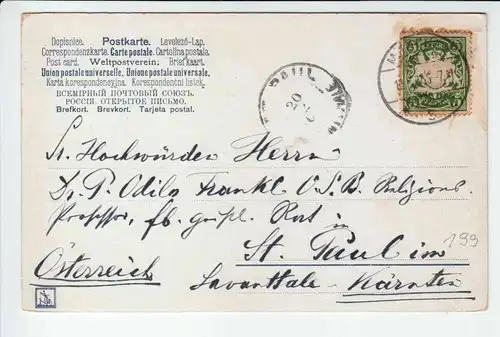 Dopisnice. Postkarte. Levelező-Lap.
Correspondenzkarte. Carte postale. Cartolina postale.
Post card. Weltpostverein. Briefkaart.
Union postale universelle. Unione postale universale.
Karta korespondencyjna. Korespondentni listek.
ВСЕМІРНЫЙ ПОЧТОВЫЙ СОЮЗЪ.
РОССІЯ. ОТКРЫТОЕ ПИСЬМО.
Brefkort. Brevkort. Tarjeta postal.
20
Sr. Hochwürden Herrn
Dr. P. Odilo Frankl O.S.B. Religions
Professor, fb. geistl. Rat in
St. Paul im
199
Österreich
Lavanttale - Kärnten